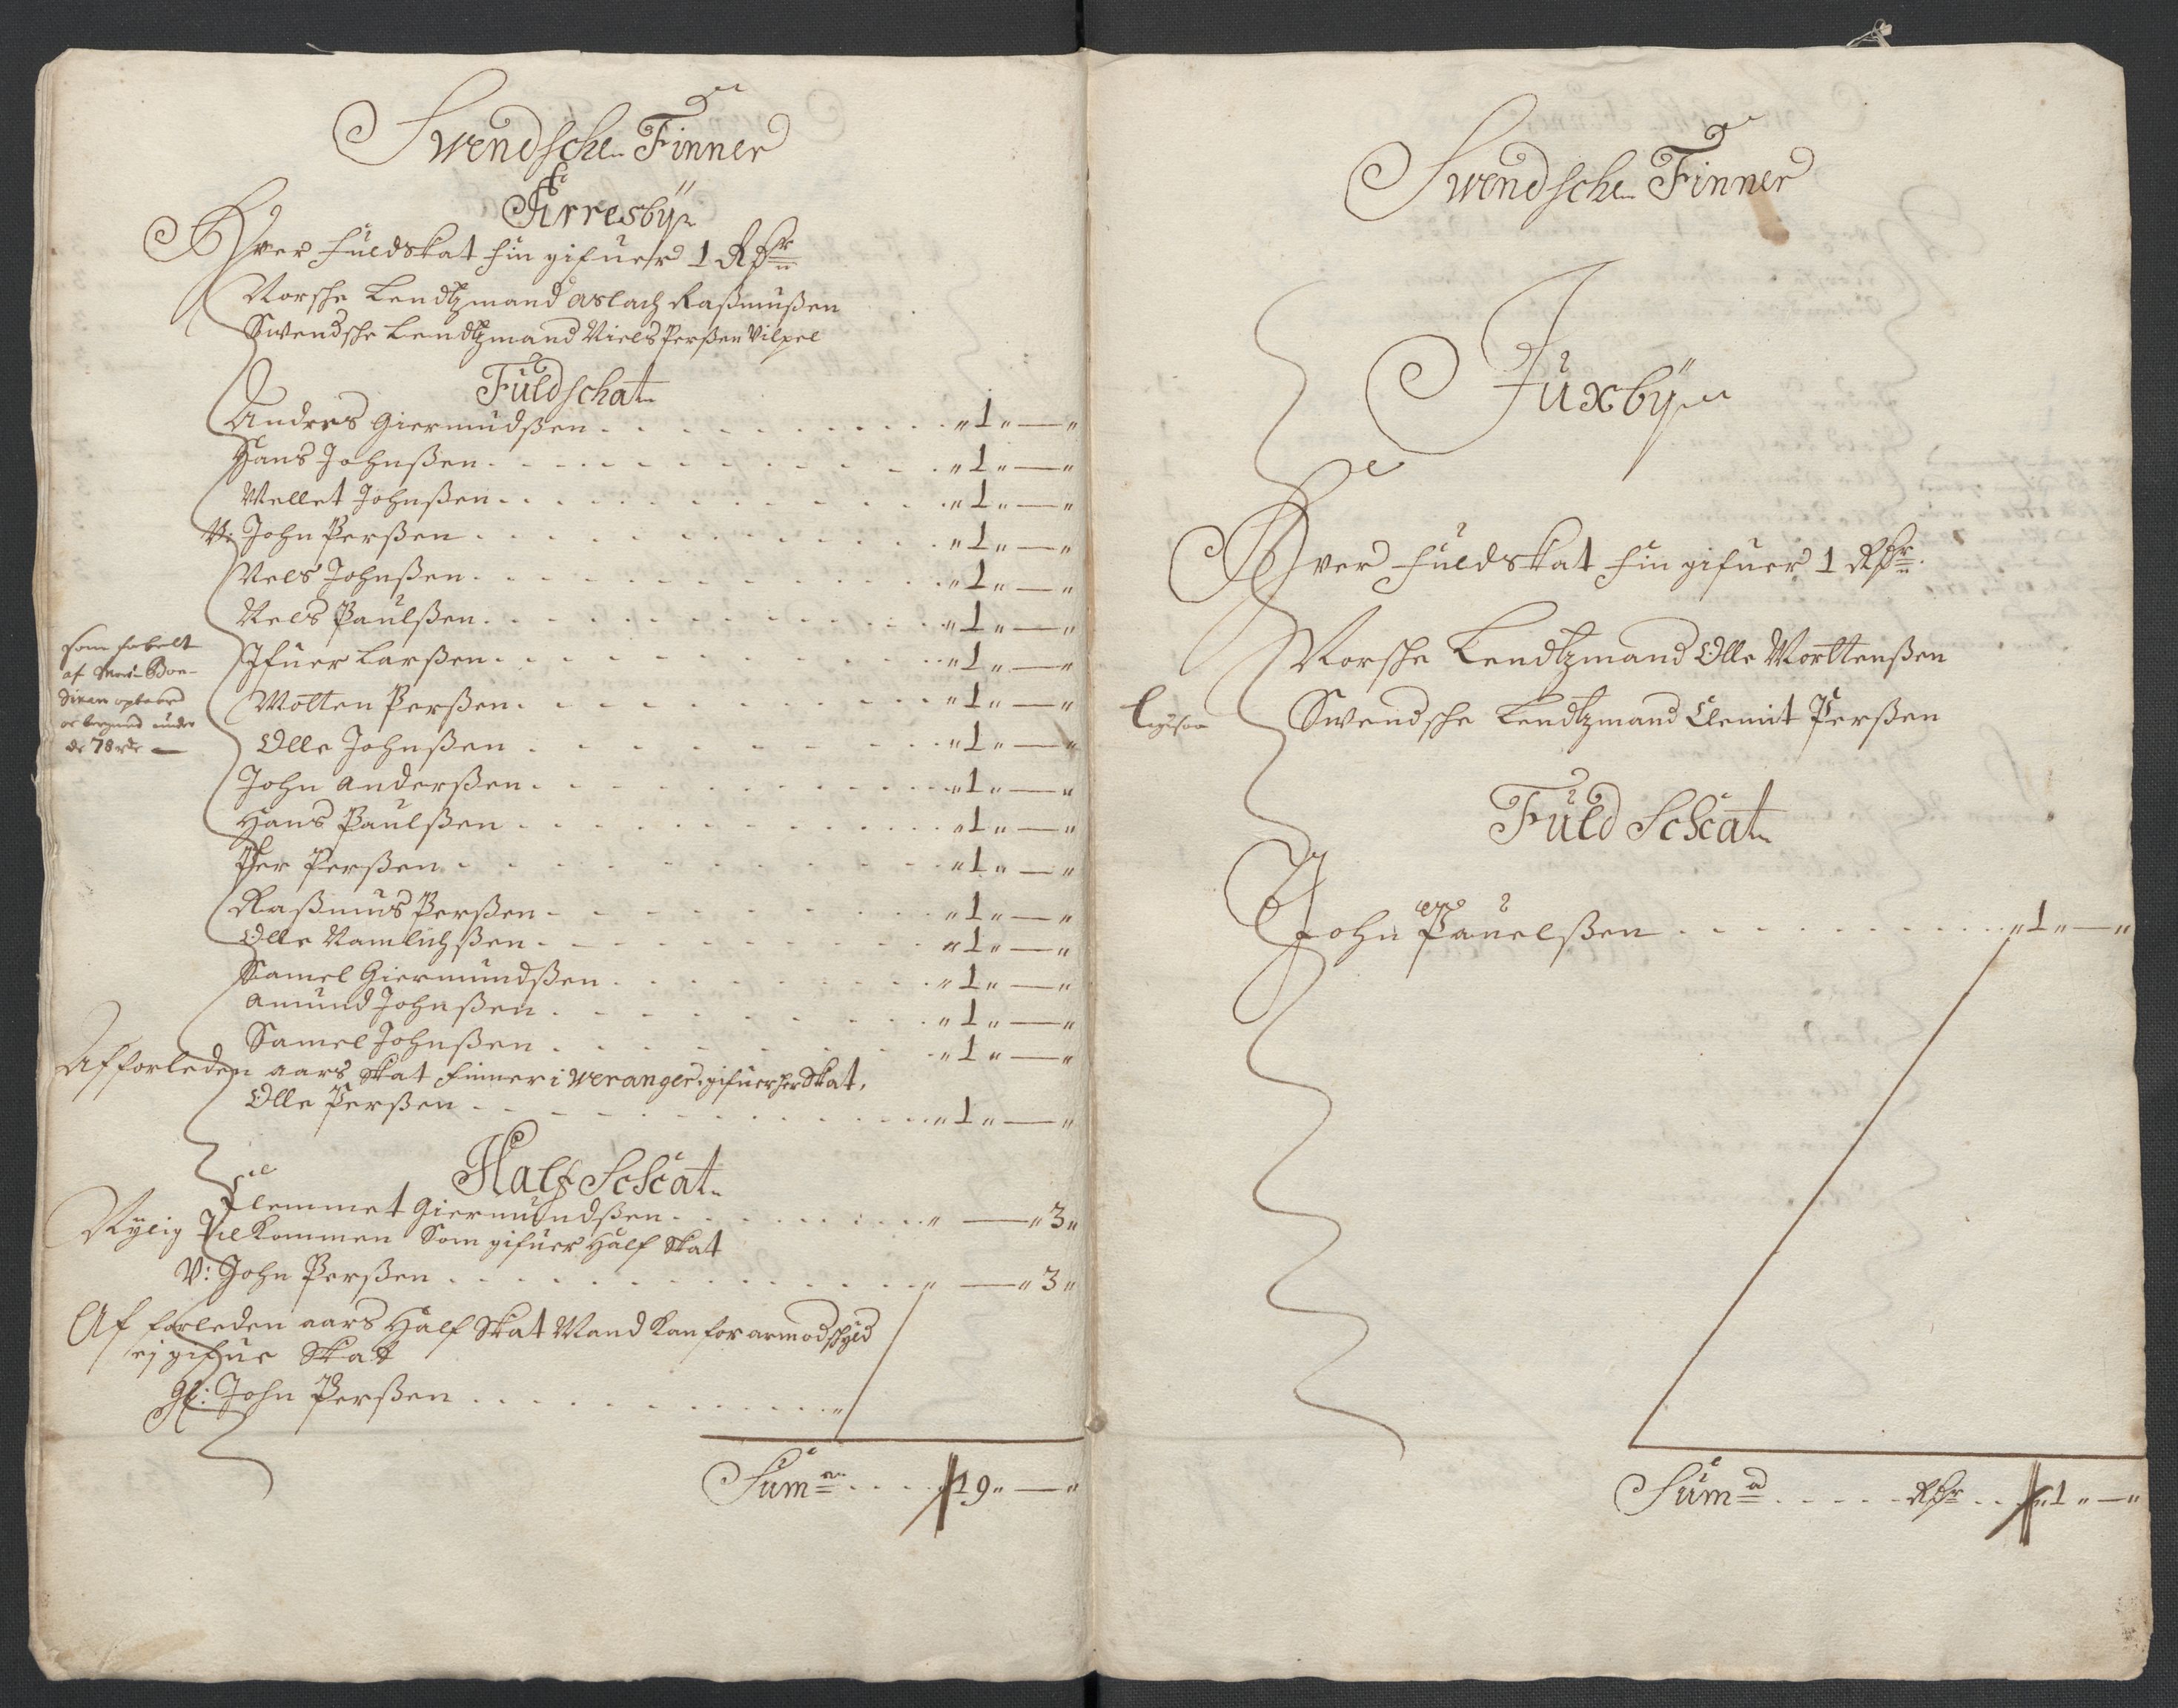 Swendsche Finner
Arresbÿ
Hver fuldskat fin gifuer 1 Rdr
Norsche Lendtzmand Aslach Raßmußen
Swendsche Lendtzmand Niels Perßen Vilpel
Fuldschat
Anders Giermudßen . . . . . . . . . . „ 1 „ — „
Hans Johnßen . . . . . . . . . . „ 1 „ — „
Mellet Johnßen . . . . . . . . . . „ 1 „ — „
V: John Perßen . . . . . . . . . . „ 1 „ — „
Nels Johnßen . . . . . . . . . . „ 1 „ — „
Nels Paulßen . . . . . . . . . . „ 1 „ — „
som
af
optaved
under
de 78 rdr —
Ifuer Larßen . . . . . . . . . . „ 1 „ — „
Motten Perßen . . . . . . . . . . „ 1 „ — „
Olle Johnßen . . . . . . . . . . „ 1 „ — „
John Anderßen . . . . . . . . . . „ 1 „ — „
Hans Paulßen . . . . . . . . . . „ 1 „ — „
Per Perßen . . . . . . . . . . „ 1 „ — „
Raßmus Perßen . . . . . . . . . . „ 1 „ — „
Olle Namlichßen . . . . . . . . . . „ 1 „ — „
Samel Giermundßen . . . . . . . . . . „ 1 „ — „
Amund Johnßen . . . . . . . . . . „ 1 „ — „
Samel Johnßen . . . . . . . . . . „ 1 „ — „
Af forleden aars Skat finner i Weranger, gifuer her Skat.
Olle Perßen . . . . . . . . . . „ 1 „ — „
Half Schat
Clemmet Giermundßen . . . . . . . . „ — „ 3 „
Nylig Tilkommen Som gifuer Half Skat
V: John Perßen . . . . . . . . . . „ — „ 3 „
Af forleden aars Half Skat Mand kan for armod schyld
ej gifue Skat
Gl: John Perßen . . . . . . . . . . „
Suma . . . . 19 „ — „
Swendsche Finner
Juxbÿ
Hver fuldskat fin gifuer 1 Rdr.
Norsche Lendtzmand Olle Morttenßen
Swendsche Lendtzmand Clemit Perßen
Fuld Schat
John Pauelßen . . . . . . . . . . „ 1 „ — „
Suma . . . . . Rdr . . „ 1 „ — „